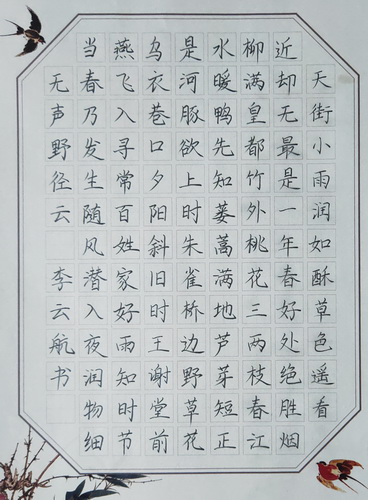 天街小雨润如酥草色遥看
近却无最是一年春好处绝胜烟
柳满皇都竹外桃花三两枝春江
水暖鸭先知蒌蒿满地芦芽短正
是河豚欲上时朱雀桥边野草花
乌衣巷口夕阳斜旧时王谢堂前
燕飞入寻常百姓家好雨知时节
当春乃发生随风潜入夜润物细
无声野径云 李云航书